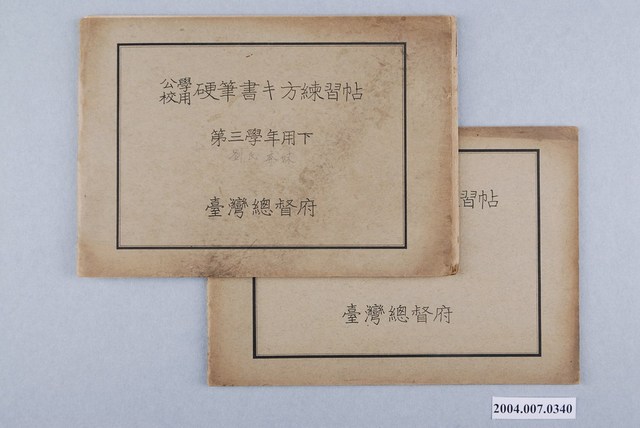 公學校用硬筆書キ方練習帖
第三學年用下
臺灣總督府
習帖
臺灣總督府
2004.007.0340